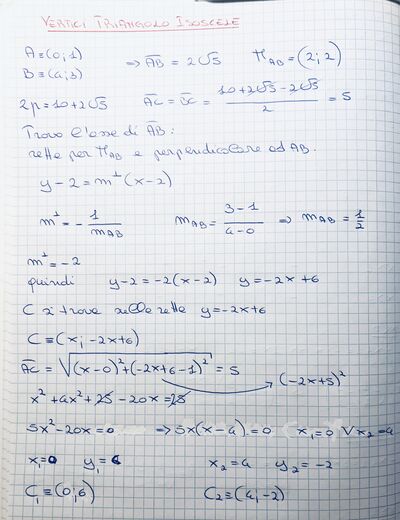 VERTICI TRIANGOLO ISOSCELE
A≡(0;1) ⇒ AB = 2√5 M_AB = (2;2)
B≡(4;3)
2p = 10+2√5 AC = BC = (10+2√5-2√5)/2 = 5
Trovo l'asse di AB:
retta per M_AB e perpendicolare ad AB.
y-2 = m⊥(x-2)
m⊥ = -1/m_AB m_AB = (3-1)/(4-0) ⇒ m_AB = 1/2
m⊥ = -2
quindi y-2 = -2(x-2) y = -2x+6
C si trova sulla retta y = -2x+6
C≡(x; -2x+6)
AC = √((x-0)²+(-2x+6-1)²) = 5 (-2x+5)²
x²+4x²+25-20x=25
5x²-20x=0 ⇒ 5x(x-4)=0 x₁=0 ∨ x₂=4
x₁=0 y₁=6 x₂=4 y₂=-2
C₁≡(0;6) C₂≡(4;-2)